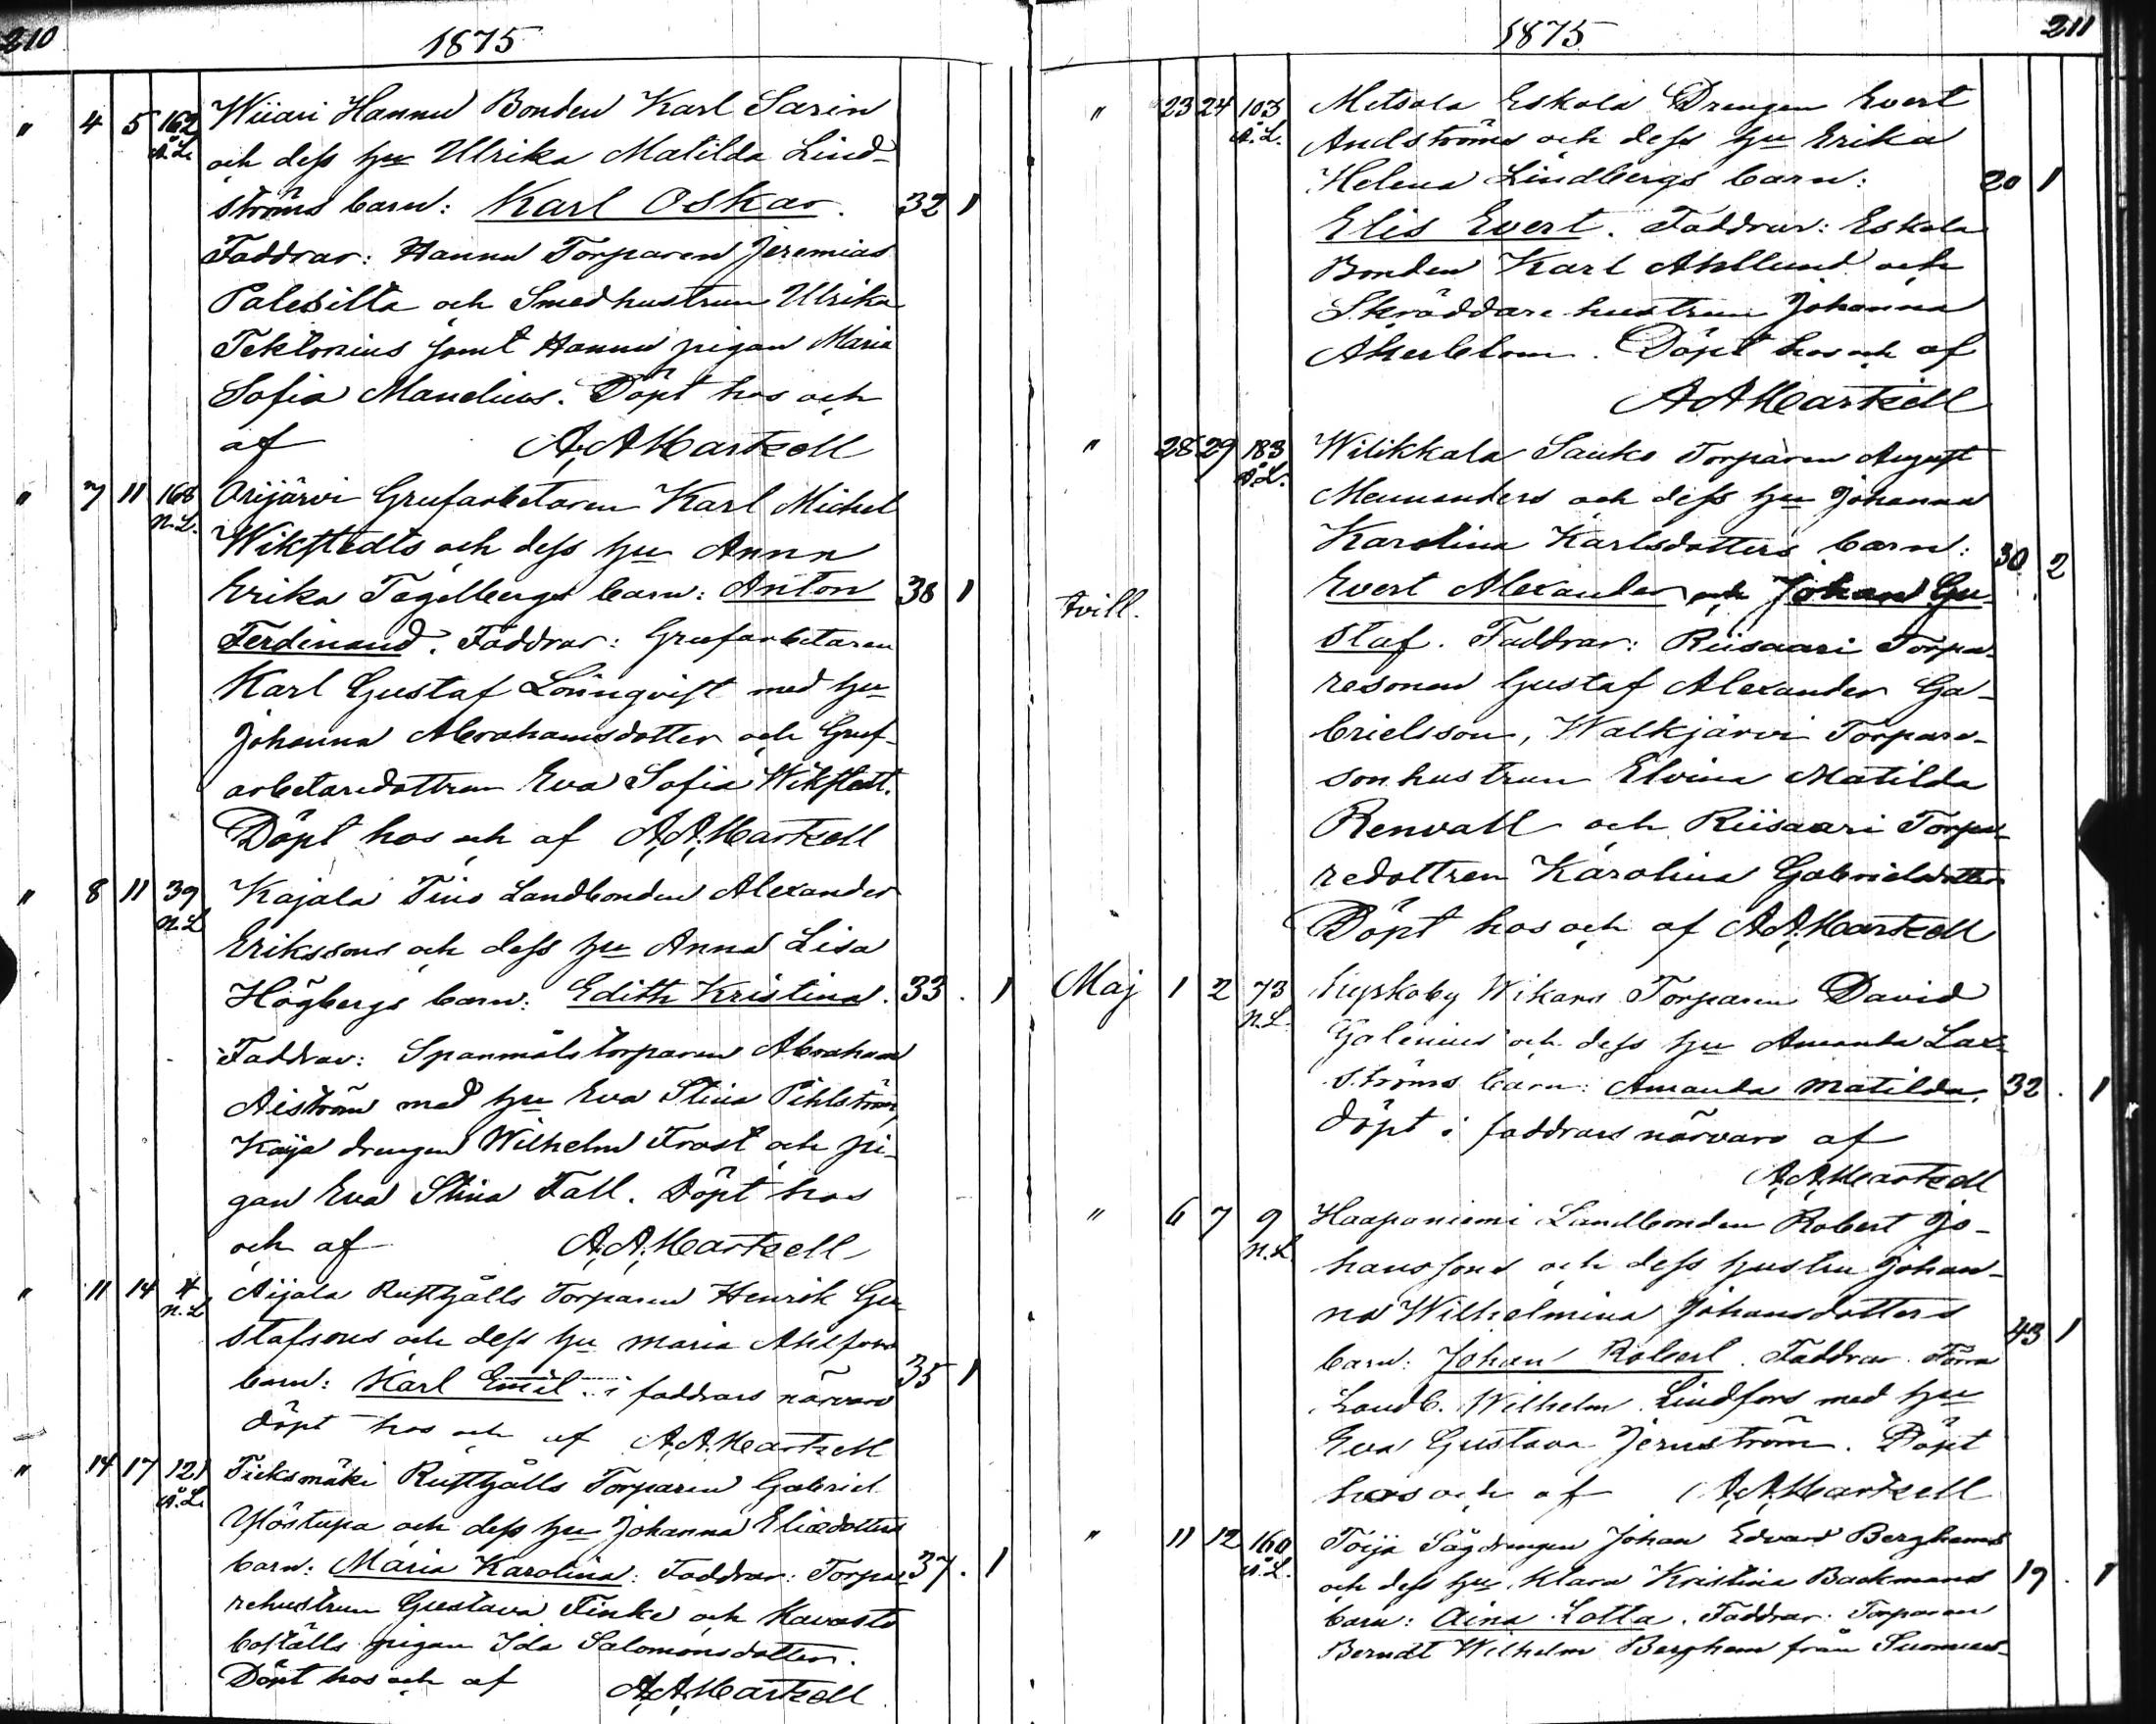 210
1875
" 4 5 162 Wiiari Hannu Bonden Karl Sarin
Å.L. och dess hu Ulrika Matilda Lind-
ströms barn: Karl Oskar. 32 1
Faddrar: Hannu Torparen Jeremias
Palesitta och Smedhustrun Ulrika
Tektonius samt Hannu pigan Maria
Sofia Mandelius. Döpt hos och
af A. A. Hartzell
" 7 11 168 Orijärvi Grufarbetaren Karl Michel
N.L. Wikstedts och dess hu Anna
Erika Tegelbergs barn: Anton 38 1
Ferdinand. Faddrar: Grufarbetaren
Karl Gustaf Lönnqvist med hu
Johanna Abrahamsdotter och Gruf-
arbetaredottren Eva Sofia Wikstedt.
Döpt hos och af A. A. Hartzell
" 8 11 39 Kajala Tino Landbonden Alexander
N.L. Erikssons och dess hu Anna Lisa
Högbergs barn: Edith Kristina. 33. 1
Faddrar: Spanmåls torparen Abraham
Aiström med hu Eva Stina Pihlström,
Kaija drengen Wilhelm Frost och pi-
gan Eva Stina Fall. Döpt hos
och af A. A. Hartzell
" 11 14 4 Aijala Rusthålls Torparen Henrik Gu-
N.L. stafssons och dess hu Maria Ahlfors
barn: Karl Emil i faddrars närvaro 35 1
döpt hos och af A. A. Hartzell
" 14 17 121 Rusthålls Torparen Gabriel
Å.L. Ylöstupa och dess hu Johanna Eliædotters
barn: Maria Karolina: Faddrar: Torpa- 37. 1
rehustrun Gustava Finke och Kavasto
boställs pigan Ida Salomonsdotter.
Döpt hos och af A. A. Hartzell
1875
211
" 23 24 103 Metsola Eskola Drengen Evert
Å.L. Andströms och dess hu Erika
Helena Lindbergs barn: 20 1
Elis Evert. Faddrar: Eskola
Bonden Karl Ahllund och
Skräddare hustrun Johanna
Åkerblom. Döpt hos och af
A A Hartzell
" 28 29 183 Wilikkala Sauko Torparen August
Å.L. Mennanders och dess hu Johanna
Karolina Karlsdotters barn: 30. 2
tvill. Evert Alexander och Johan Gu-
staf. Faddrar: Riisaari Torpa-
resonen Gustaf Alexander Ga-
brielsson, Walkjärvi Torpare-
sonhustrun Elvina Matilda
Renvall och Riisaari Torpa-
redottren Karolina Gabrielsdotter
Döpt hos och af A. A. Hartzell
Maj 1 2 73 Wikars Torparen David
N.L. Galenius och dess hu Amanda Lax-
ströms barn: Amanda Matilda. 32. 1
döpt i faddrars närvaro af
A. A. Hartzell
" 6 7 9 Haapaniemi Landbonden Robert Jo-
N.L. hanssons och dess hustru Johan-
na Wilhelmina Johansdotters
barn: Johan Robert. Faddrar Förra 43 1
Landb. Wilhelm Lindfors med hu
Eva Gustava Jernström. Döpt
hos och af A. A. Hartzell
" 11 12 160 Toija Sågdrengen Johan Edvard Berghems
Å.L. och dess hu Klara Kristina Backmans 19. 1
barn: Aina Lotta. Faddrar: Torparen
Berndt Wilhelm Berghem från